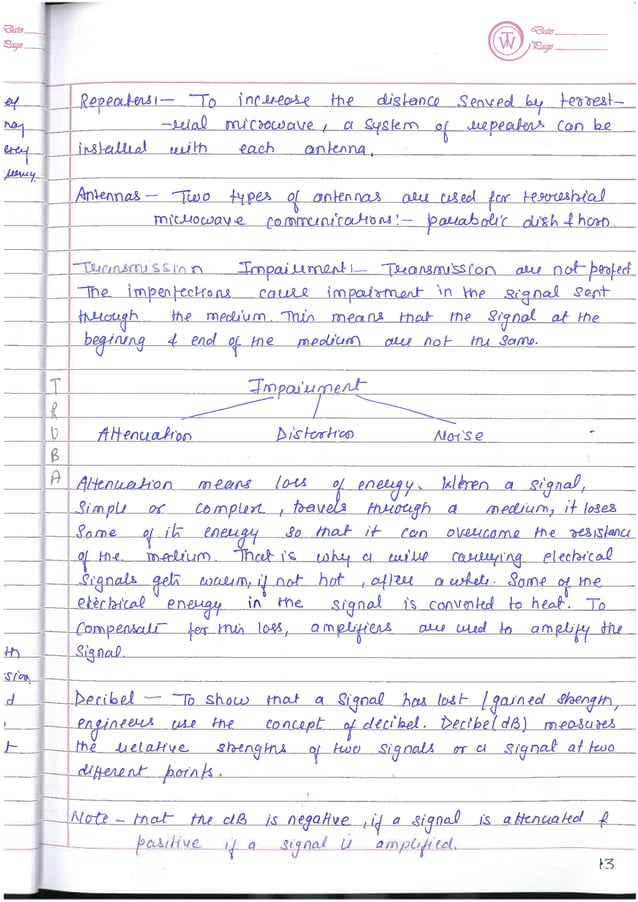 Date
Page
TW
Date
Page
Repeaters:- To increase the distance served by terrest-
-rial microwave, a system of repeaters can be
installed with each antenna.
Antennas - Two types of antennas are used for terrestrial
microwave communications:- parabolic dish & horn.
Transmission Impairment:- Transmission are not perfect.
The imperfections cause impairment in the signal sent
through the medium. This means that the signal at the
begining & end of the medium are not the same.
TRUBA
Impairment
Attenuation Distortion Noise
Attenuation means loss of energy. When a signal,
simple or complex, travels through a medium, it loses
some of its energy so that it can overcome the resistance
of the medium. That is why a wire carrying electrical
signals gets warm, if not hot, after a while. Some of the
electrical energy in the signal is converted to heat. To
compensate for this loss, amplifiers are used to amplify the
signal.
Decibel - To show that a signal has lost / gained strength,
engineers use the concept of decibel. Decibel(dB) measures
the relative strengths of two signals or a signal at two
different points.
Note - that the dB is negative, if a signal is attenuated &
positive if a signal is amplified.
13